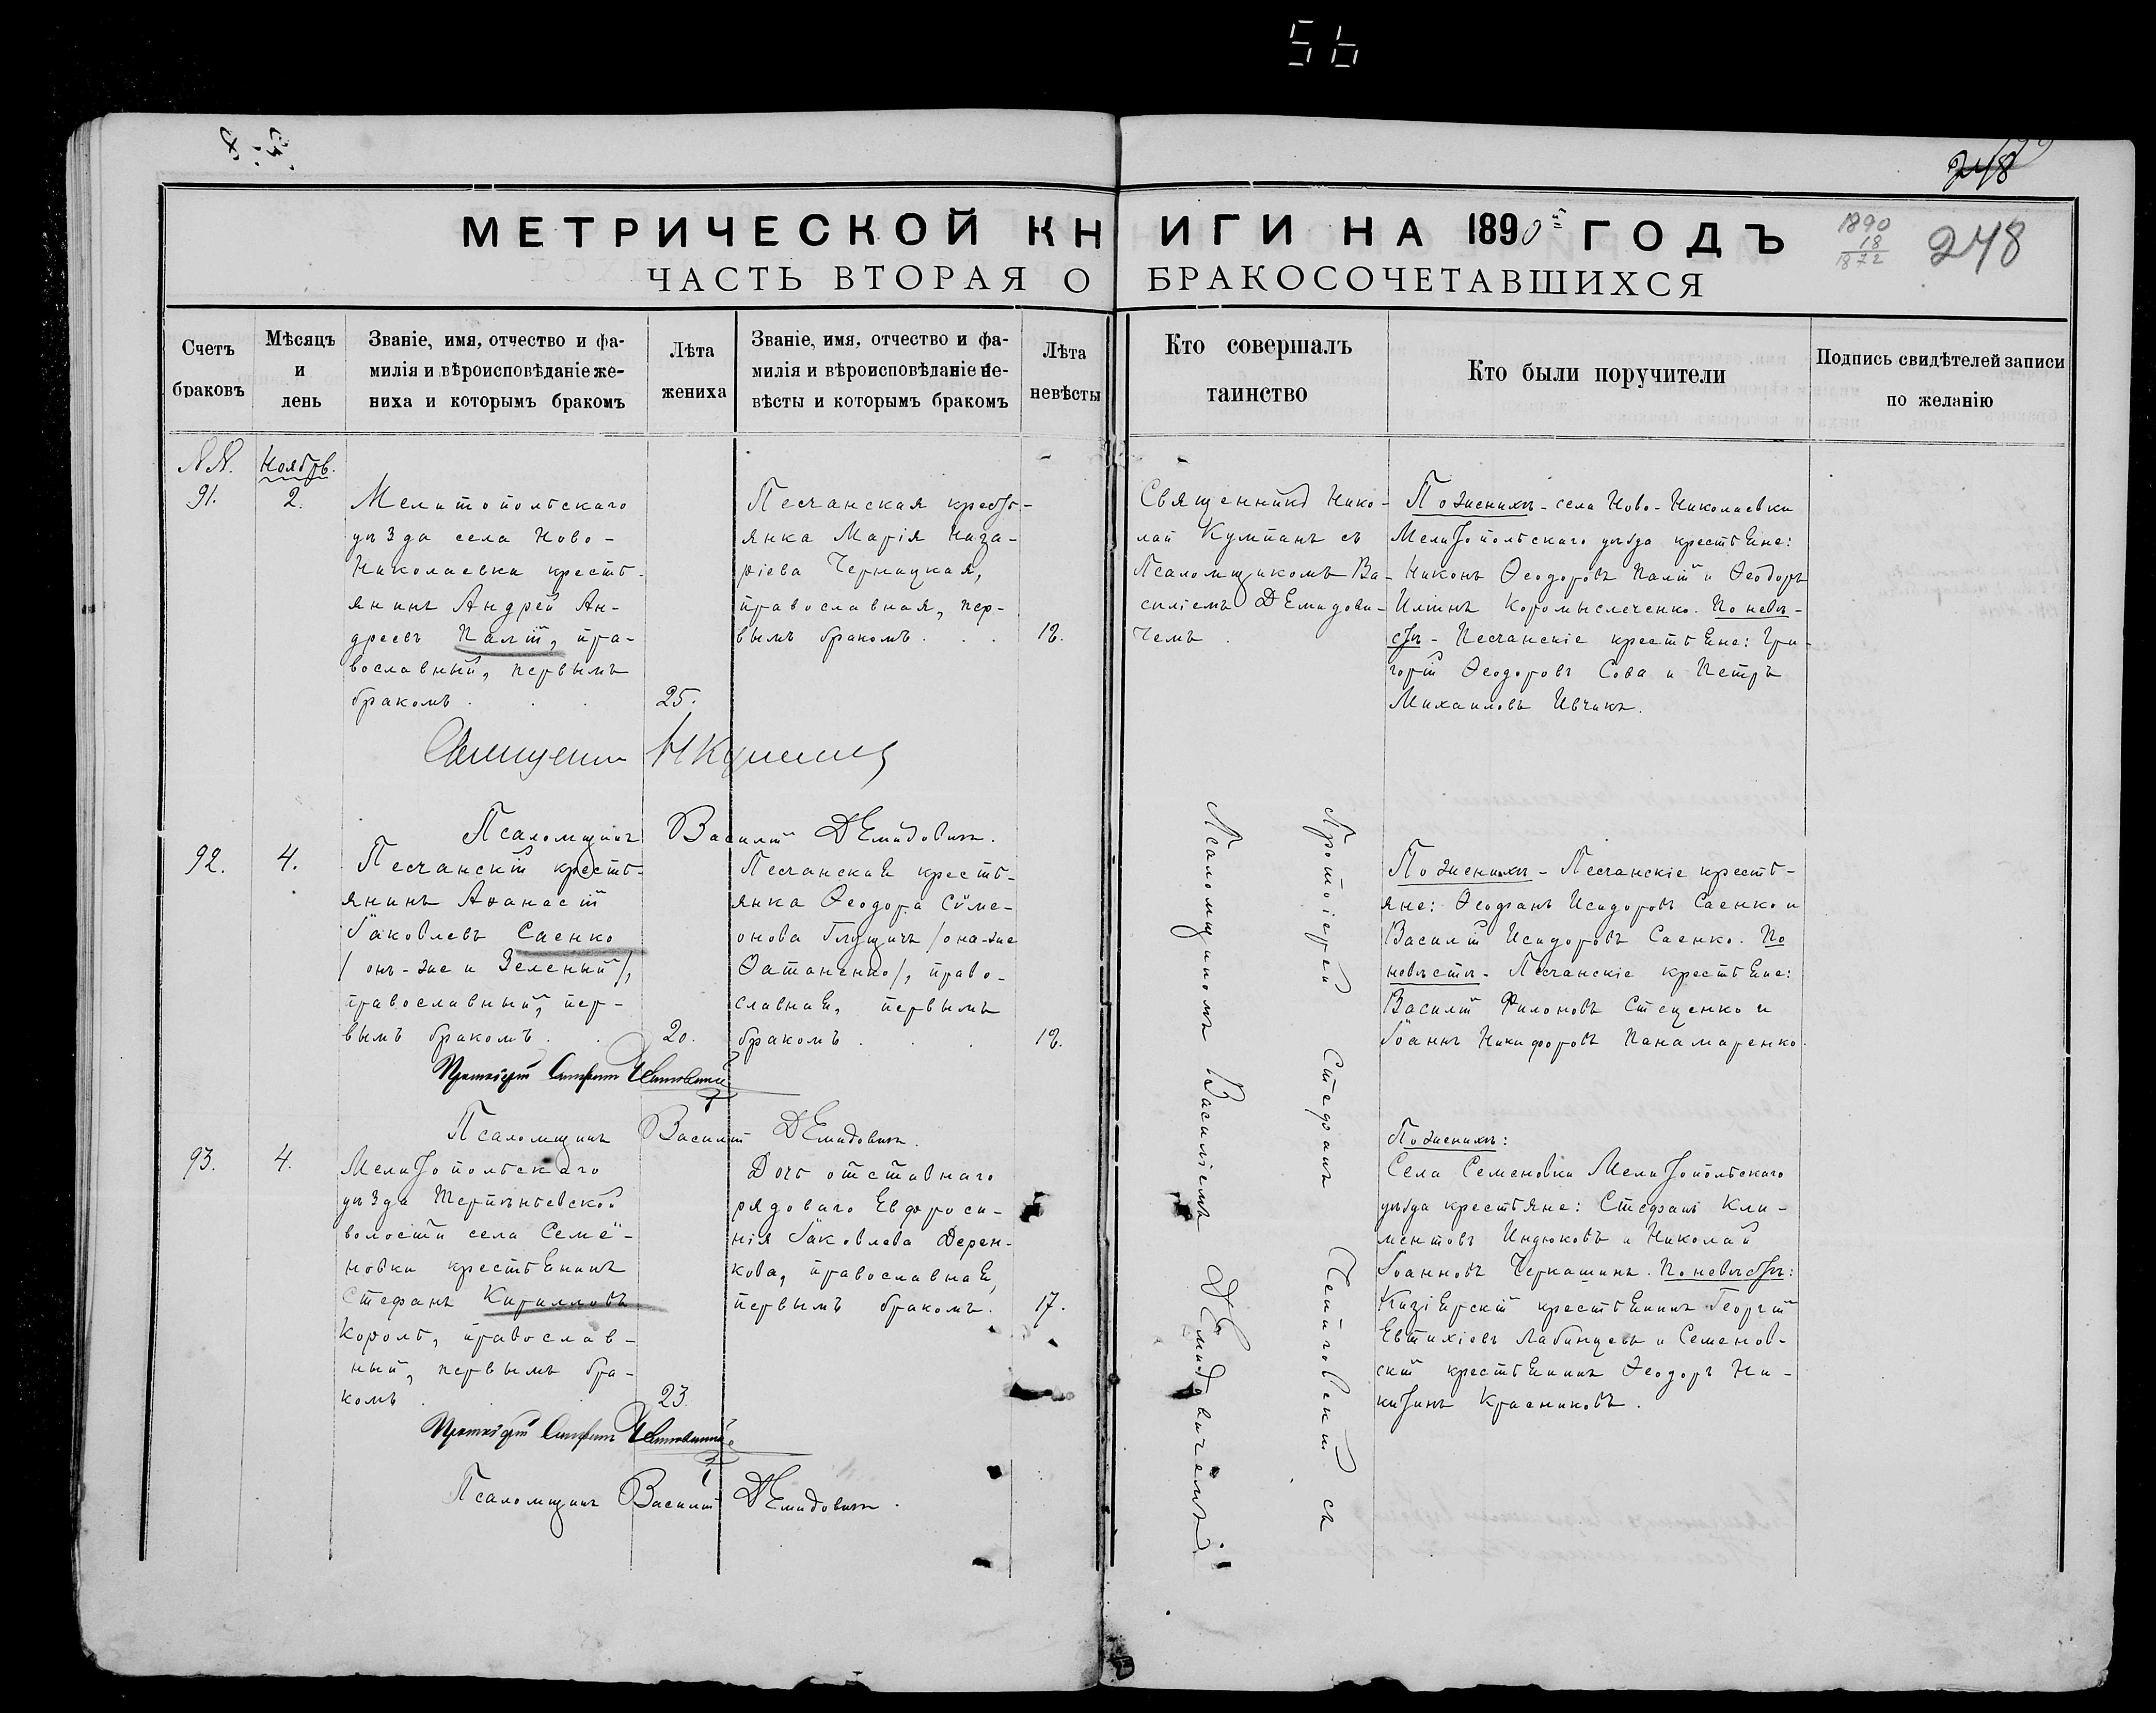 56
248
МЕТРИЧЕСКОЙ КНИГИ НА 1890й ГОДЪ
1890
18
1872
248
ЧАСТЬ ВТОРАЯ О БРАКОСОЧЕТАВШИХСЯ
Счетъ
браковъ
Мѣсяцъ
и
день
Званіе, имя, отчество и фа-
милія и вѣроисповѣданіе же-
ниха и которымъ бракомъ
Лѣта
жениха
Званіе, имя, отчество и фа-
милія и вѣроисповѣданіе не-
вѣсты и которымъ бракомъ
Лѣта
невѣсты
Кто совершалъ
таинство
Кто были поручители
Подпись свидѣтелей записи
по желанію
NN.
Ноябрь.
91.
2.
Мелитопольскаго
уѣзда села Ново-
Николаевки кресть-
янинъ Андрей Ан-
дреевъ Палій, пра-
вославный, первымъ
бракомъ . . .
25.
Песчанская кресть-
янка Марія Наза-
ріева Черницкая,
православная, пер-
вымъ бракомъ . . .
18.
Священникъ Нико-
лай Кумпанъ съ
Псаломщикомъ Ва-
силіемъ Демидови-
чемъ .
По женихѣ - села Ново-Николаевки
Мелитопольскаго уѣзда крестьяне:
Никонъ Ѳеодоровъ Палій и Ѳеодоръ
Илiинъ Коромысленченко. По невѣ-
стѣ - Песчанскіе крестьяне: Гри-
горій Ѳеодоровъ Сова и Петръ
Михаиловъ Ивчикъ.
Священникъ Н Кумпанъ
Псаломщикъ Василій Демидовичъ.
92.
4.
Песчанскій кресть-
янинъ Аѳанасій
Іаковлевъ Саенко
/ онъ-же и Зеленый /,
православный, пер-
вымъ бракомъ . .
20.
Песчанская кресть-
янка Ѳеодора Сѵме-
онова Глущичъ / она-же
Остапенко /, право-
славная, первымъ
бракомъ . . .
18.
Протоіерей Стефанъ съ
Псаломщикомъ Василіемъ Демидовичемъ.
По женихѣ - Песчанскіе кресть-
яне: Ѳеофанъ Исидоровъ Саенко и
Василій Исидоровъ Саенко. По
невѣстѣ - Песчанскіе крестьяне:
Василій Филоновъ Стеценко и
Іоаннъ Никифоровъ Панамаренко.
Протоіерей Стефанъ
Псаломщикъ Василій Демидовичъ.
93.
4.
Мелитопольскаго
уѣзда Терпѣньевской
волости села Семе-
новки крестьянинъ
Стефанъ Кирилловъ
Король, православ-
ный, первымъ бра-
комъ . .
23.
Дочь отставнаго
рядоваго Евфроси-
нія Іаковлева Дерен-
кова, православная,
первымъ бракомъ.
17.
По женихѣ:
Села Семеновки Мелитопольскаго
уѣзда крестьяне: Стефанъ Кли-
ментовъ Индюковъ и Николай
Іоанновъ Черкашинъ. По невѣстѣ:
Кизіярскій крестьянинъ Георгій
Евтихіевъ Лабинцевъ и Семенов-
скій крестьянинъ Ѳеодоръ Ни-
китинъ Красниковъ.
Протоіерей Стефанъ
Псаломщикъ Василій Демидовичъ.